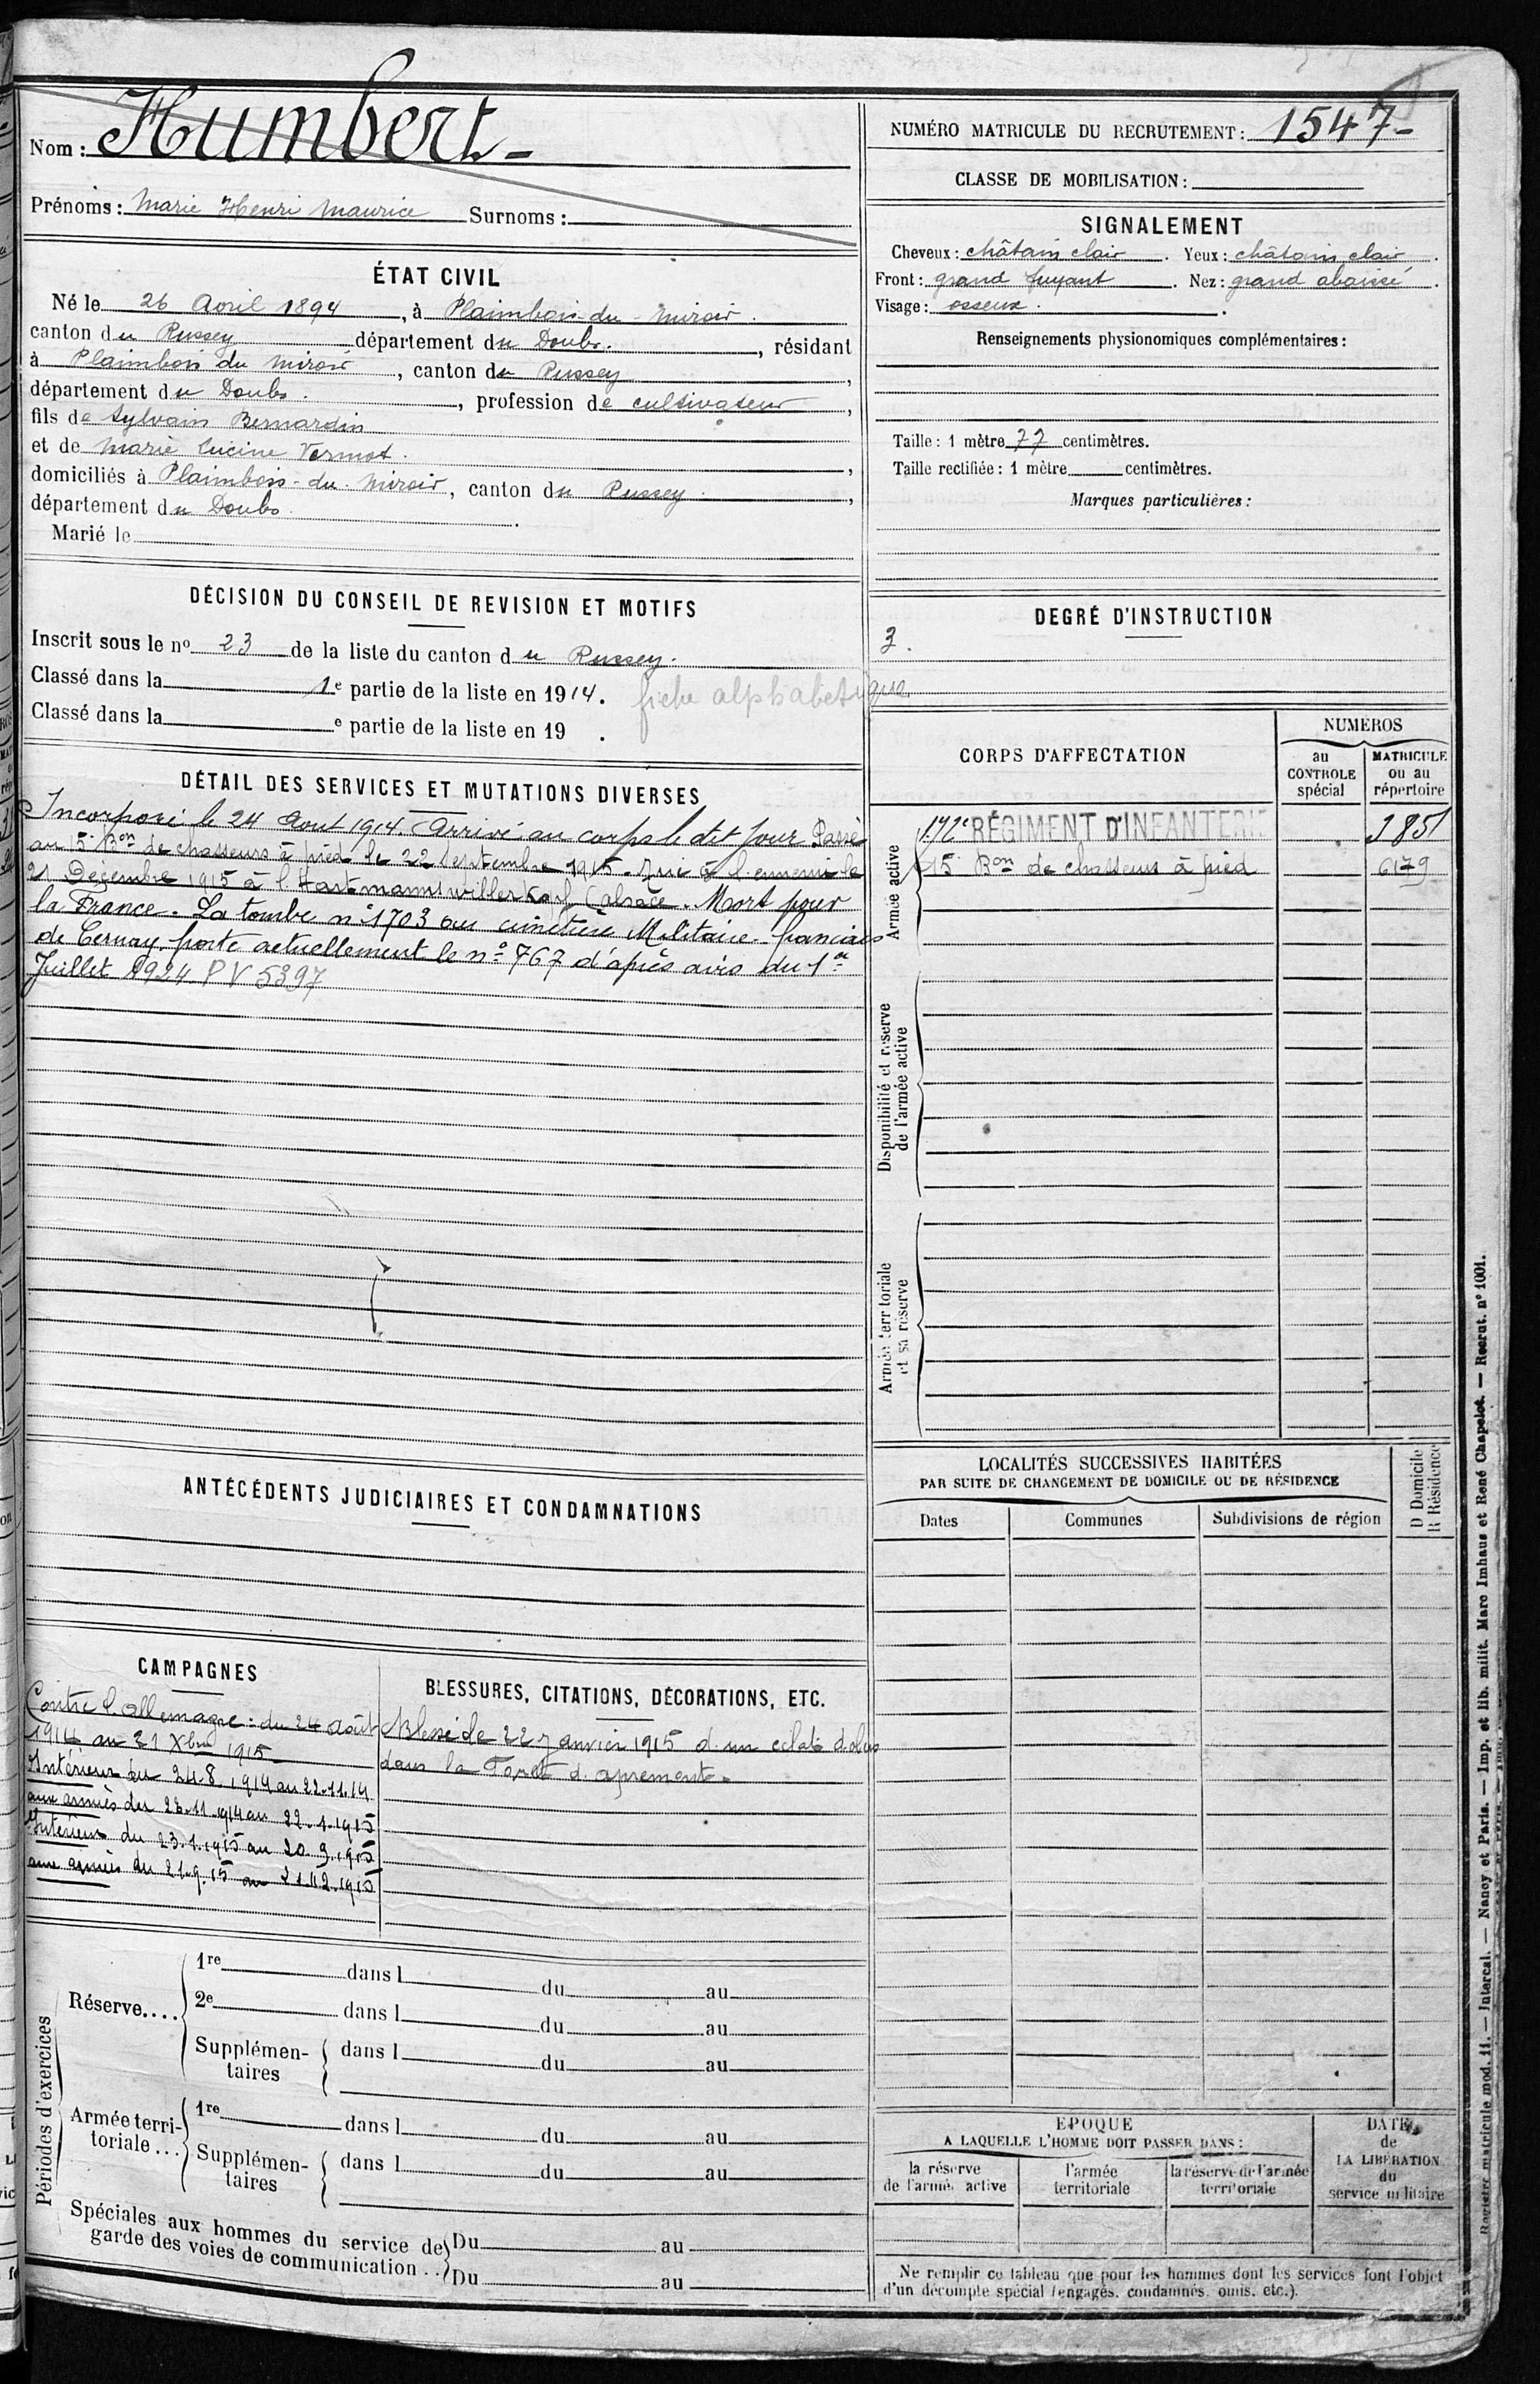 Nom : Humbert -
Prénoms : Marie Henri Maurice Surnoms :
ÉTAT CIVIL
Né le 26 Avril 1894, à Plaimbois-du-Miroir.
canton du Russey département du Doubs., résidant
à Plaimbois du Miroir, canton du Russey,
département du Doubs., profession de cultivateur,
fils de Sylvain Bernardin
et de Marie Vermot.,
domiciliés à Plaimbois-du-Miroir, canton du Russey.,
département du Doubs.
Marié le
DÉCISION DU CONSEIL DE REVISION ET MOTIFS
Inscrit sous le nº 23 de la liste du canton du Russey.
Classé dans la 1e partie de la liste en 1914. fiche alphabetique
Classé dans la e partie de la liste en 19 .
DÉTAIL DES SERVICES ET MUTATIONS DIVERSES
Incorporé le 24 Aout 1914. Arrivé au corps le dit jour. Passé
au 15e Bon de chasseurs à pied le 22 septembre 1915. Tué à l'ennemi le
21 Décembre 1915 à l'Hartmannswillerkopf (alsace. Mort pour
la France. La tombe nº 1703 au cimetière Militaire français
de Cernay porte actuellement le nº 767 d'après avis du 1er
Juillet 1924. P V 5397
ANTÉCÉDENTS JUDICIAIRES ET CONDAMNATIONS
CAMPAGNES
Contre l'allemagne : du 24 août
1914 au 21 Xbre 1915
Intérieur du 24.8.1914 au 22.11.14
aux armées du 23.11.1914 au 22.1.1915
Intérieur du 23.1.1915 au 20.9.1915
aux armées du 21.9.15 au 21.12.1915
BLESSURES, CITATIONS, DÉCORATIONS, ETC.
Blessé le 22 Janvier 1915 d'un eclat d'obus
dans la Foret d'apremont.
Périodes d'exercices
Réserve....
1re dans l du au
2e dans l du au
Supplémen-taires dans l du au
Armée terri-toriale...
1re dans l du au
Supplémen-taires dans l du au
Spéciales aux hommes du service de Du au
garde des voies de communication .. Du au
NUMÉRO MATRICULE DU RECRUTEMENT : 1547-
CLASSE DE MOBILISATION :
SIGNALEMENT
Cheveux : châtain clair. Yeux : châtain clair.
Front : grand fuyant. Nez : grand abaissé.
Visage : osseux.
Renseignements physionomiques complémentaires :
Taille : 1 mètre 77 centimètres.
Taille rectifiée : 1 mètre centimètres.
Marques particulières :
DEGRÉ D'INSTRUCTION
3.
CORPS D'AFFECTATION
NUMÉROS
au CONTROLE spécial
MATRICULE ou au répertoire
Armée active
172e RÉGIMENT D'INFANTERIE
15e Bon de chasseurs à pied 6179
Disponibilité et réserve
de l'armée active
Armée territoriale
et sa réserve
LOCALITÉS SUCCESSIVES HABITÉES
PAR SUITE DE CHANGEMENT DE DOMICILE OU DE RÉSIDENCE
D Domicile
R Résidence
Dates Communes Subdivisions de région
ÉPOQUE
A LAQUELLE L'HOMME DOIT PASSER DANS :
la réserve de l'armée active
l'armée territoriale
la réserve de l'armée territoriale
DATE de LA LIBÉRATION du service militaire
Ne remplir ce tableau que pour les hommes dont les services font l'objet
d'un décompte spécial (engagés, condamnés, omis, etc.).
Registre matricule mod. 11. — Intercal. — Nancy et Paris. — Imp. et lib. milit. Marc Imhaus et René Chapelot. — Recrut. nº 1001.